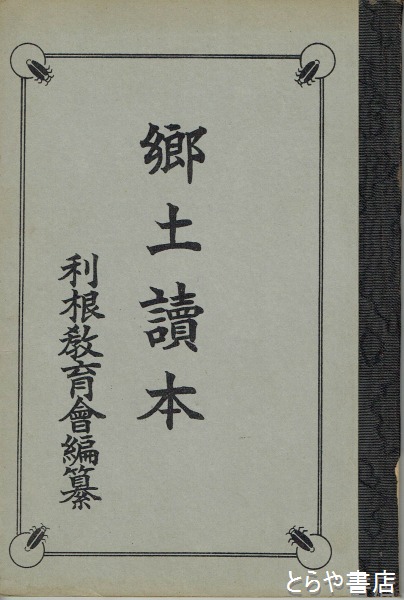 郷土讀本
利根敎育會編纂
とらや書店